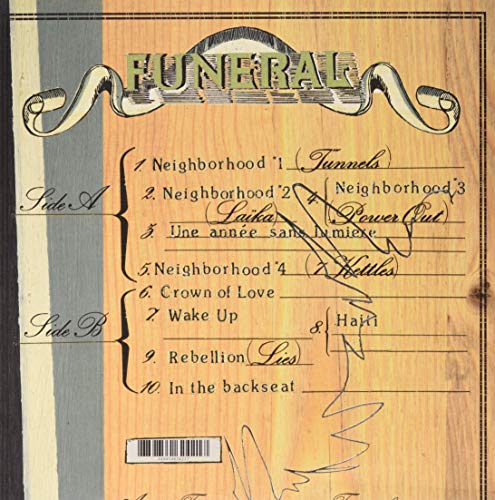 FUNERAL
Side A
1. Neighborhood #1 (Tunnels)
2. Neighborhood #2 (Laika)
3. Une année sans lumiere
4 Neighborhood #3 (Power Out)
5. Neighborhood #4 (7 Kettles)
Side B
6. Crown of Love
7. Wake Up
8. Haiti
9. Rebellion (Lies)
10. In the backseat